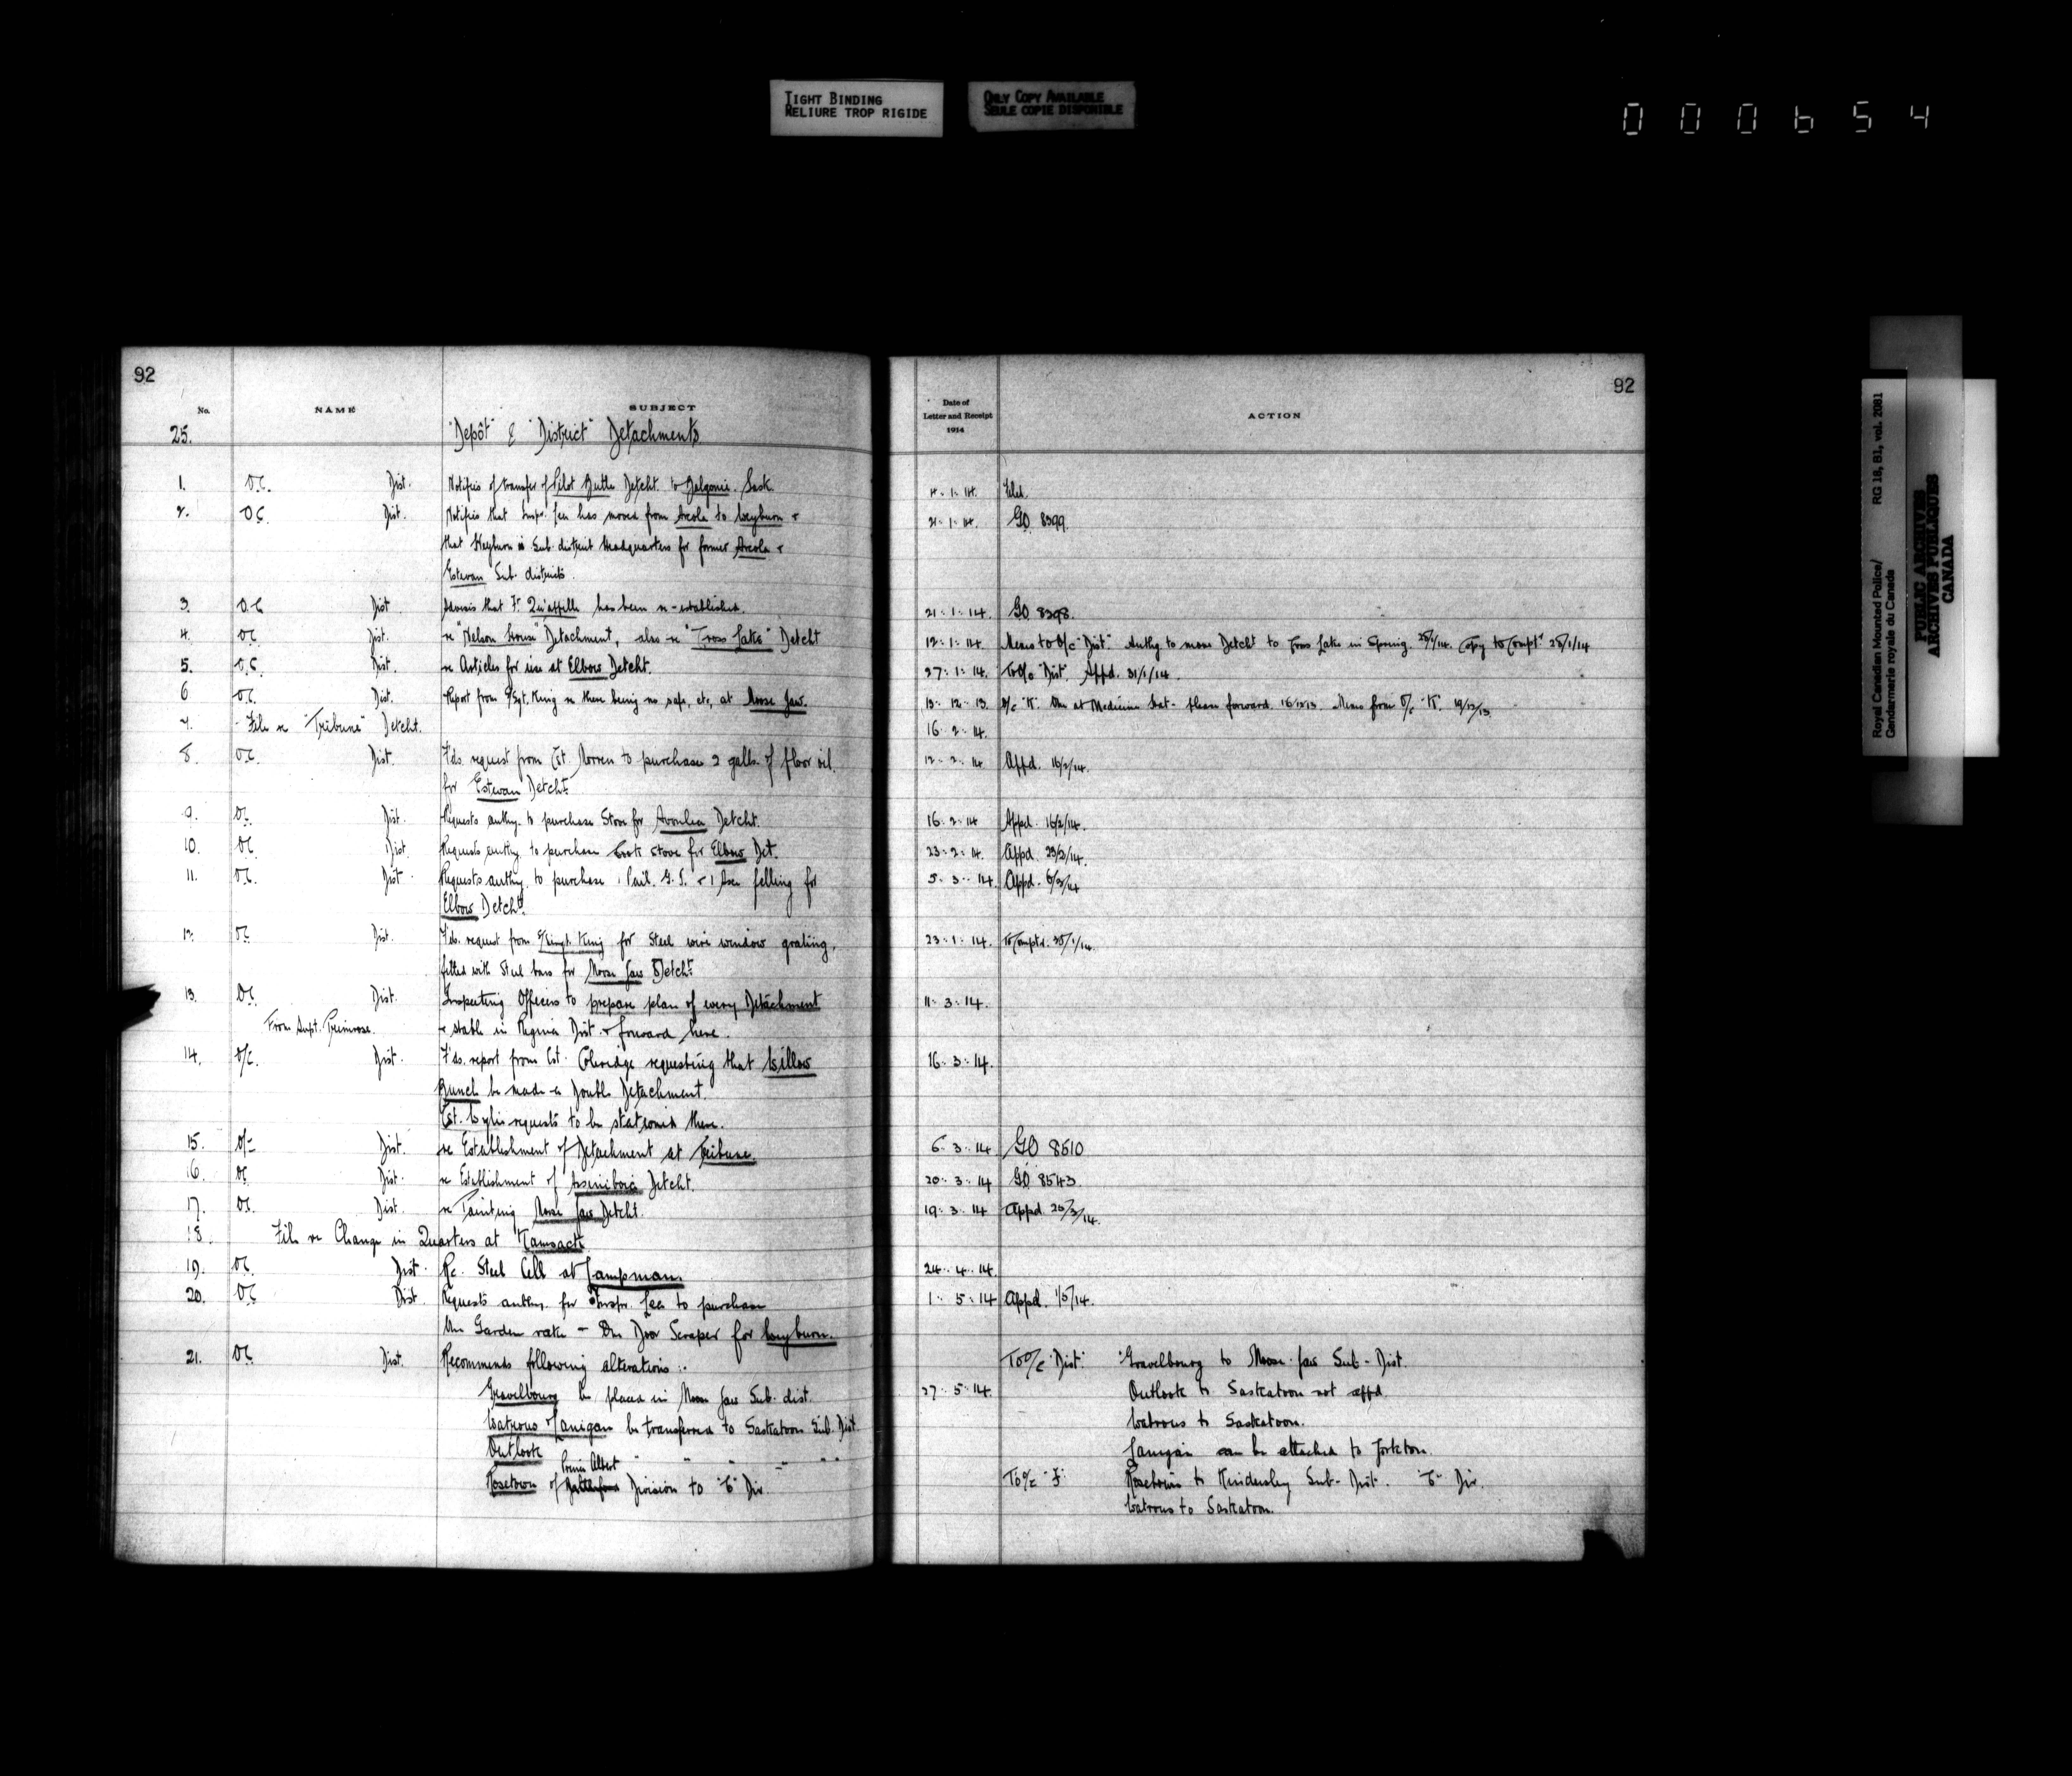 TIGHT BINDING
RELIURE TROP RIGIDE
ONLY COPY AVAILABLE
SEULE COPIE DISPONIBLE
000654
92
No. NAME SUBJECT
25. "Depôt" & "District" Detachments
1. O.C. Dist. Notifies of transfer of Pilot Butte Detcht. to Balgonie. Sask
2. OC Dist. Notifies that Inspr. Lee has moved from Arcola to Weyburn &
that Weyburn is Sub. district Headquarters for former Arcola &
Estevan Sub. districts.
3. O.C Dist. Advises that Ft. Qu'appelle has been re-established.
4. OC. Dist. re "Nelson House" Detachment, also re "Cross Lake" Detcht
5. O.C. Dist. re Articles for use at Elbow Detcht.
6 OC. Dist. Report from S/Sgt. King re there being no safe, etc, at Moose Jaw.
7. - File re "Tribune" Detcht.
8. OC. Dist. F'ds. request from Cst. to purchase 2 galls. of floor oil
for Estevan Detcht.
9. OC. Dist. Requests authy. to purchase Stove for Avonlea Detcht.
10. OC Dist. Requests authy. to purchase Cook Stove for Elbow Det.
11. OC. Dist. Requests authy. to purchase 1 Pail. G.I. & 1 Axe felling for
Elbow Detcht.
12. OC Dist. F'ds. request from King for Steel wire window grating,
fitted with Steel bars for Moose Jaw Detcht.
13. OC. Dist. Inspecting Officers to prepare plan of every Detachment
From Supt. Primrose. & stable in Regina Dist. & forward here.
14. O/C. Dist. F'ds. report from Cst. Coleridge requesting that Willow
Bunch be made a Double Detachment.
Cst. Wylie requests to be stationed there.
15. O/C Dist. re Establishment of Detachment at Tribune.
16. OC Dist. re Establishment of Assiniboia Detcht.
17. OC. Dist. re Painting Moose Jaw Detcht.
18. File re Change in Quarters at Kamsack
19. OC. Dist. Re. Steel Cell at Lampman.
20. OC Dist. Requests authy. for Inspr. Lee to purchase
One Garden rake - One Door Scraper for Weyburn.
21. OC. Dist. Recommends following alterations :-
Gravelbourg be placed in Moose Jaw Sub. dist.
Watrous & Lanigan be transferred to Saskatoon Sub. Dist.
Outlook " " " " " "
Prince Albert
Rosetown of Battleford Division to "C" Div.
92
Date of
Letter and Receipt
1914
ACTION
4. 1. 14.
21. 1. 14. GO 8399.
21. 1. 14. GO 8398.
12. 1. 14. Memo to O/C "Dist". Authy. to move Detcht to Cross Lake in Spring. 28/1/14. Copy to Compt. 28/1/14
27. 1. 14. To O/C "Dist". Appd. 31/1/14.
13. 12. 13. O/C "K". One at Medicine Hat - Please forward. 16/12/13. Memo from O/C "K". 19/12/13.
16. 2. 14.
12. 2. 14 Appd. 16/2/14.
16. 2. 14 Appd. 16/2/14.
23. 2. 14. Appd. 23/2/14.
5. 3. 14. Appd. 6/3/14
23. 1. 14. To Comptr. 30/1/14.
11. 3. 14.
16. 3. 14.
6. 3. 14 GO 8510
20. 3. 14 GO 8543.
19. 3. 14 Appd. 20/3/14.
24. 4. 14.
1. 5. 14 Appd. 1/5/14.
To O/C "Dist." "Gravelbourg to Moose Jaw Sub-Dist.
27. 5. 14. Outlook to Saskatoon not appd.
Watrous to Saskatoon.
Lanigan can be attached to Yorkton.
To O/C "F". Rosetown to Kindersley Sub-Dist. "C" Div.
Watrous to Saskatoon.
Royal Canadian Mounted Police/
Gendarmerie royale du Canada
RG 18, B1, vol. 2081
PUBLIC ARCHIVES
ARCHIVES PUBLIQUES
CANADA